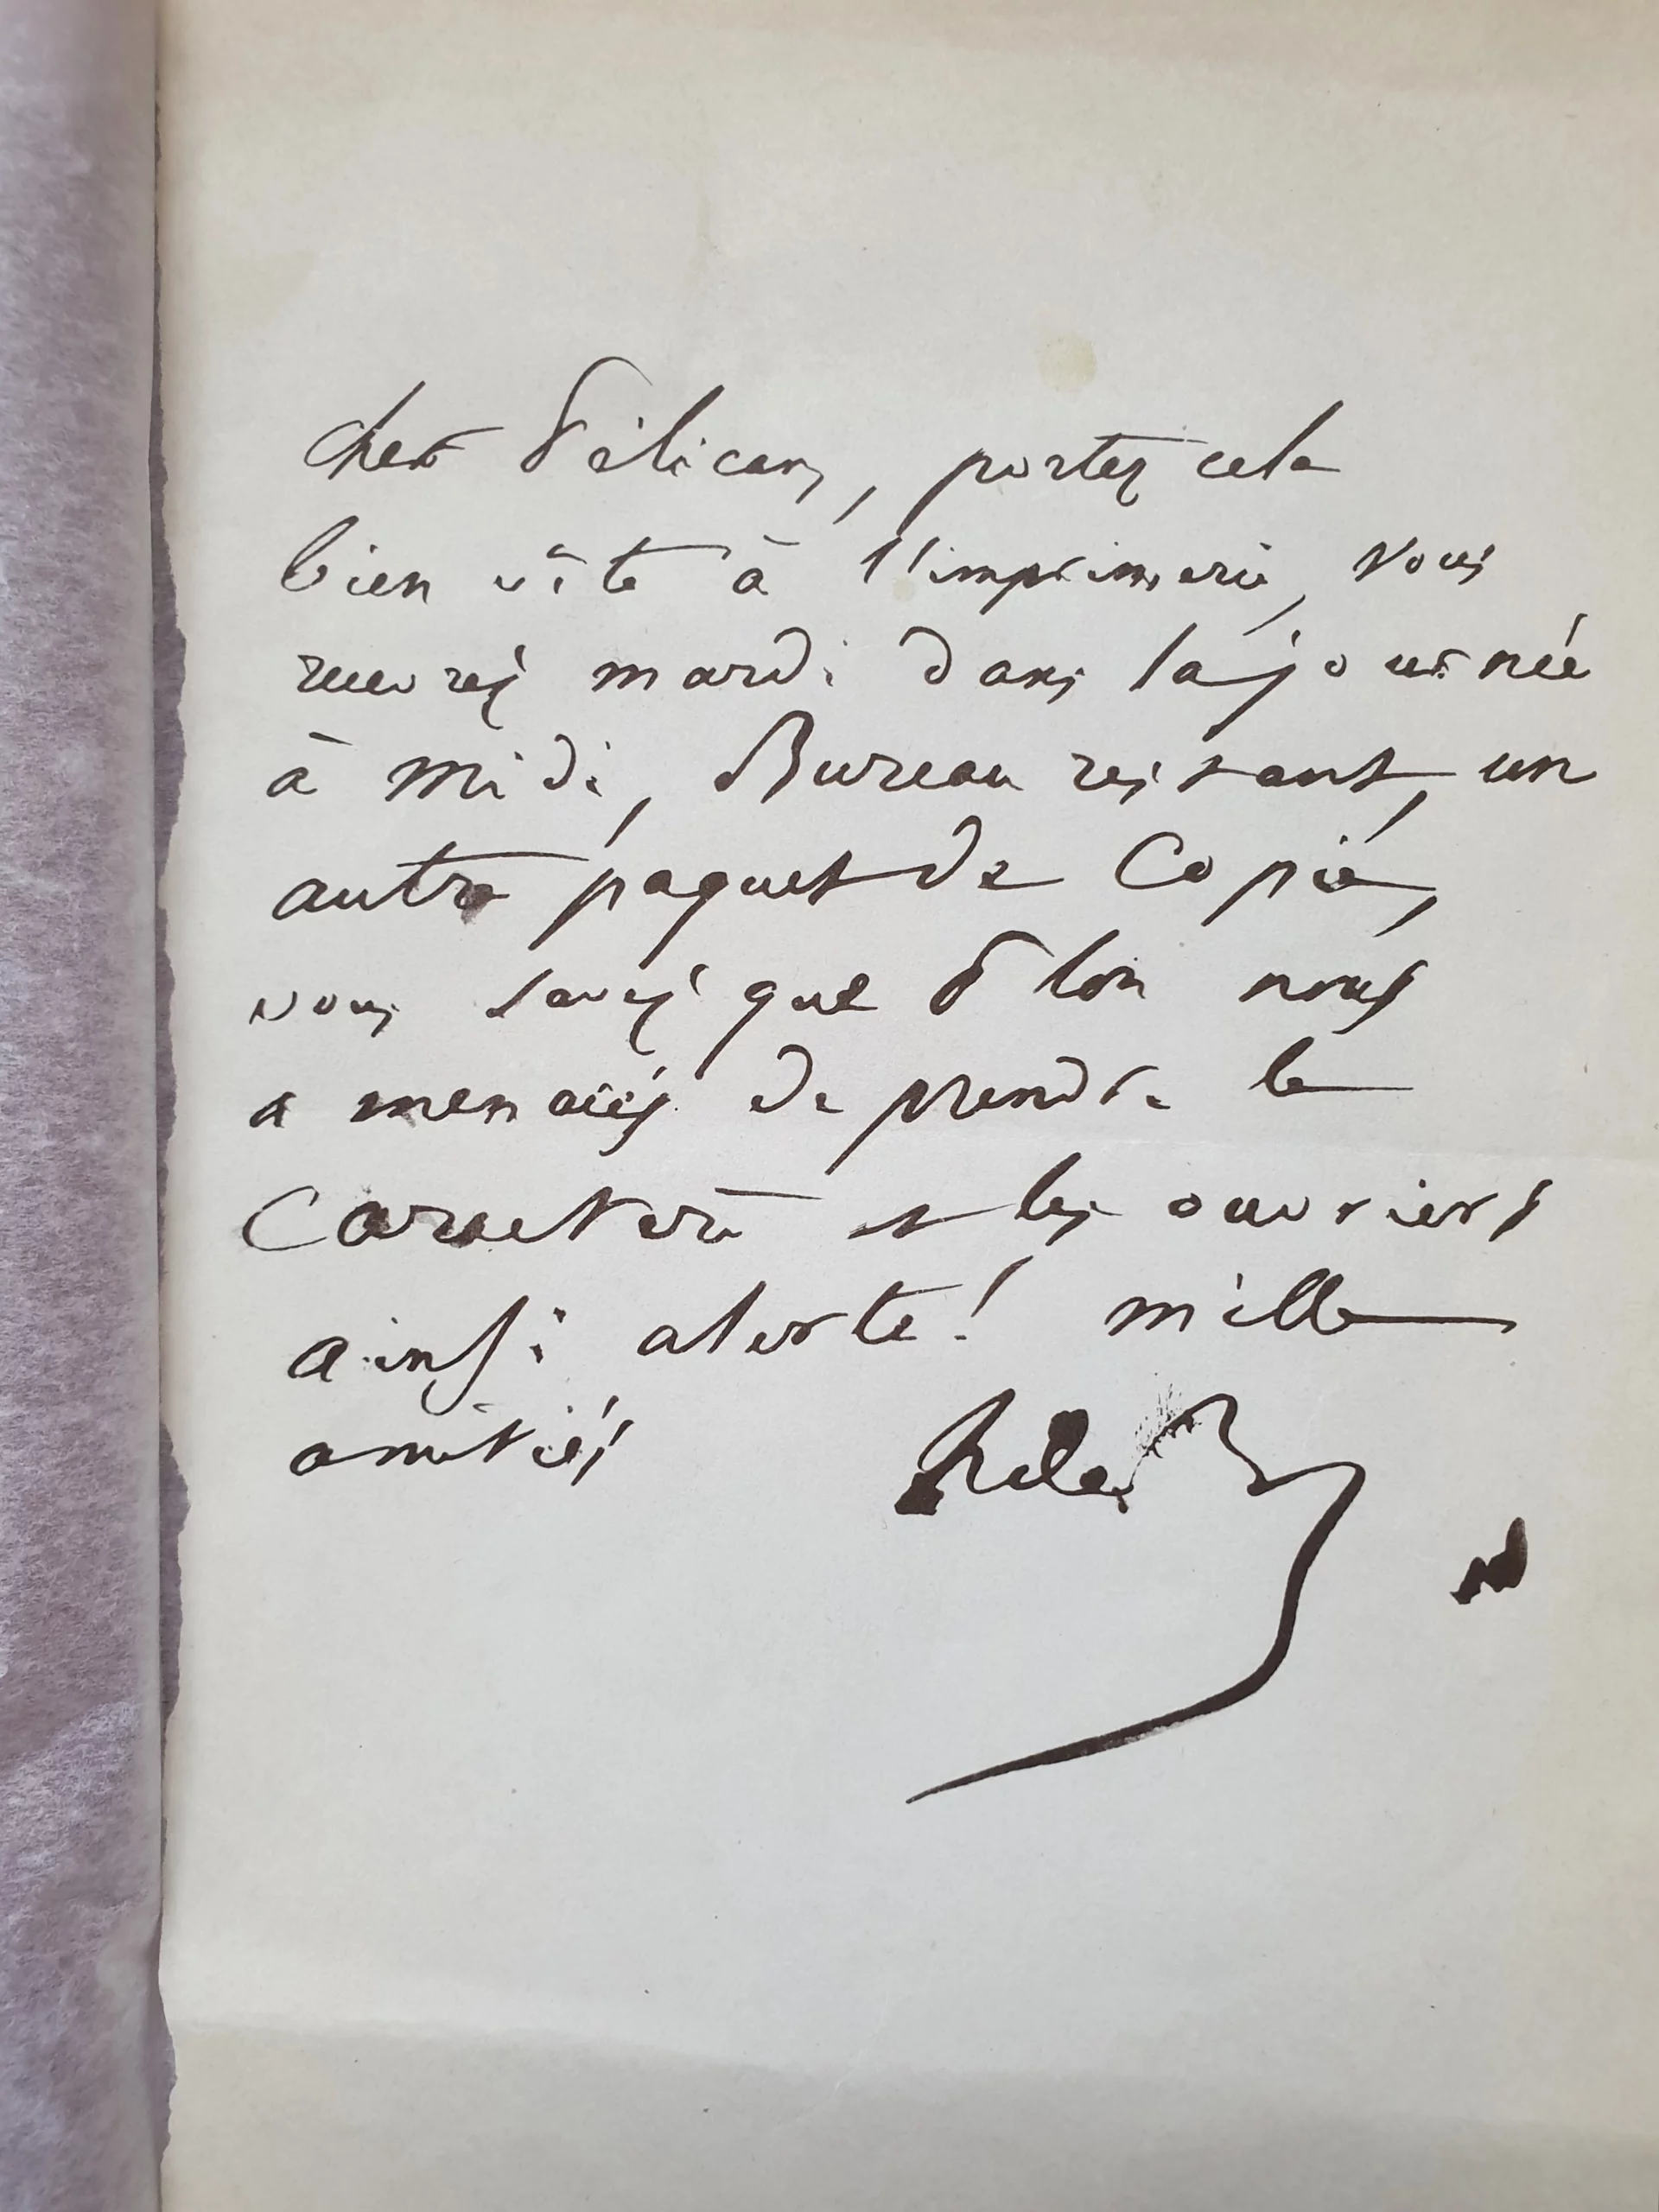 cher Pélican, portez cela
bien vîte à l'imprimerie, vous
recevrez mardi dans la journée
à midi, Bureau restant, un
autre paquet de Copie,
vous savez que Plon nous
a menacés de prendre le
Caractère et les ouvriers
ainsi alerte! mille
amitiés